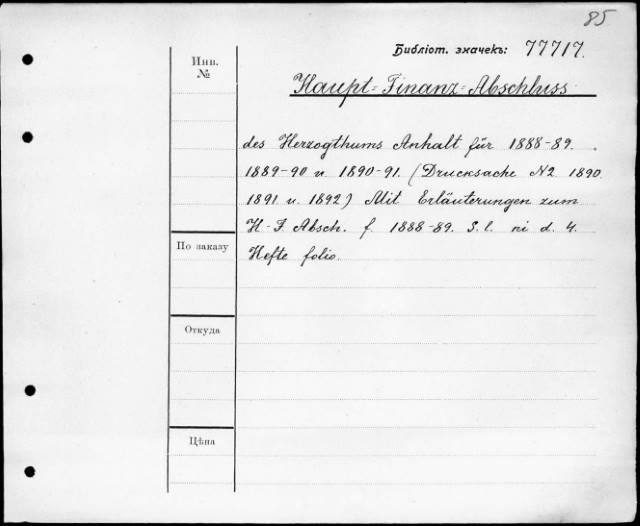 85
Библіот. значекъ: 77717.
Инв.
№
Haupt-Finanz-Abschluss
des Herzogthums Anhalt für 1888-89.
1889-90 u. 1890-91. (Drucksache N2 1890
1891 u. 1892) Mit Erläuterungen zum
H-F. Absch. f. 1888-89. S. l. ni d. 4.
По заказу
Hefte folio.
Откуда
Цѣна